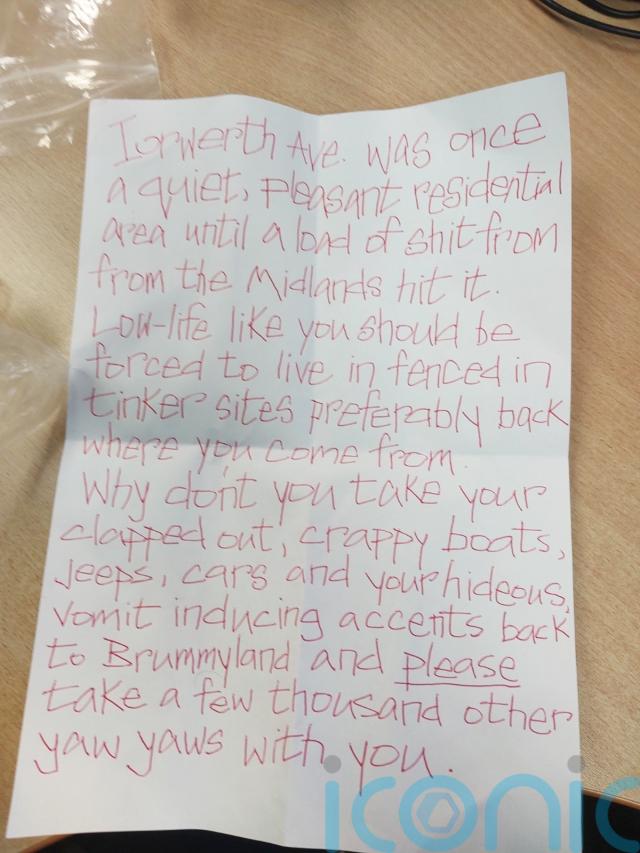 Iorwerth Ave. was once
a quiet, pleasant residential
area until a load of shit from
from the Midlands hit it.
Low-life like you should be
forced to live in fenced in
tinker sites preferably back
where you come from.
Why don't you take your
clapped out, crappy boats,
Jeeps, cars and your hideous,
vomit inducing accents back
to Brummyland and please
take a few thousand other
yaw yaws with you.
iconic